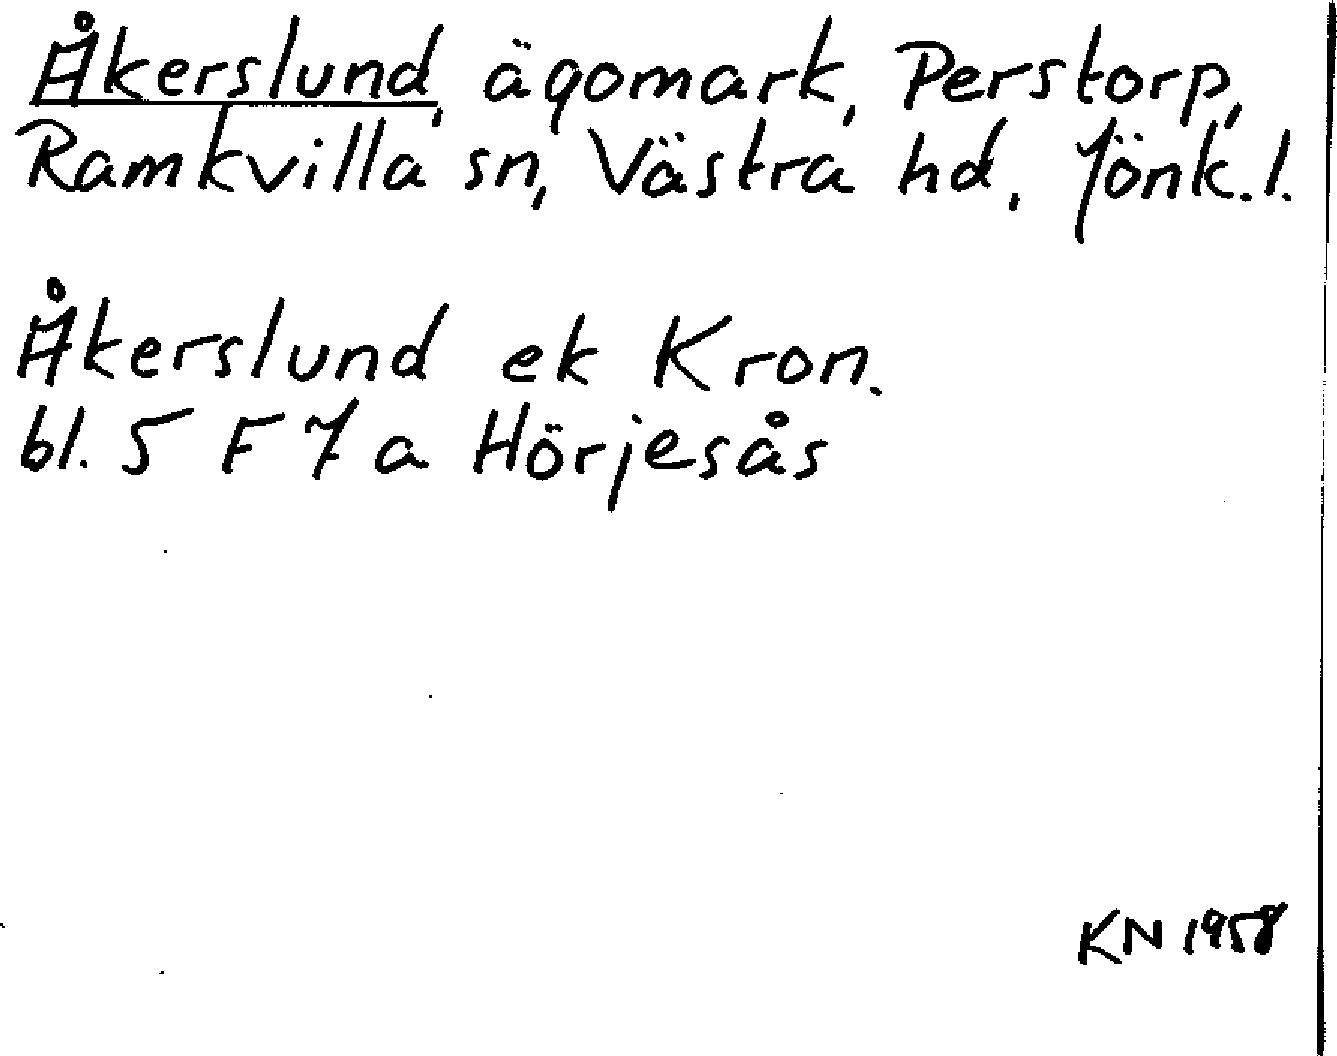 Åkerslund, ägomark, Perstorp,
Ramkvilla sn, Västra hd, Jönk.l.
Åkerslund ek Kron.
bl. 5 F 7 a Hörjesås
KN 1958